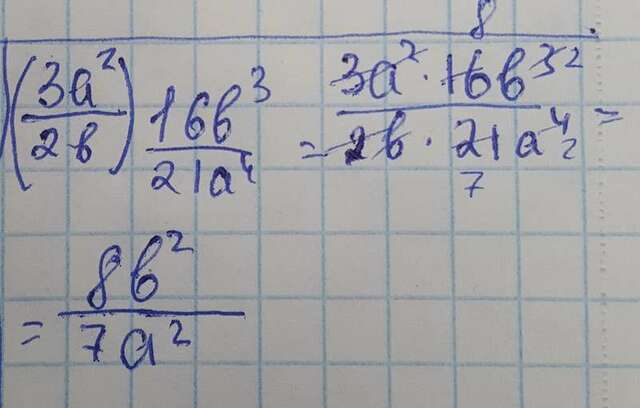 (3a²/2b) 16b³/21a⁴ = 3a²·16b³ ²/2b·21a⁴ ₂ =
8
7
= 8b²/7a²